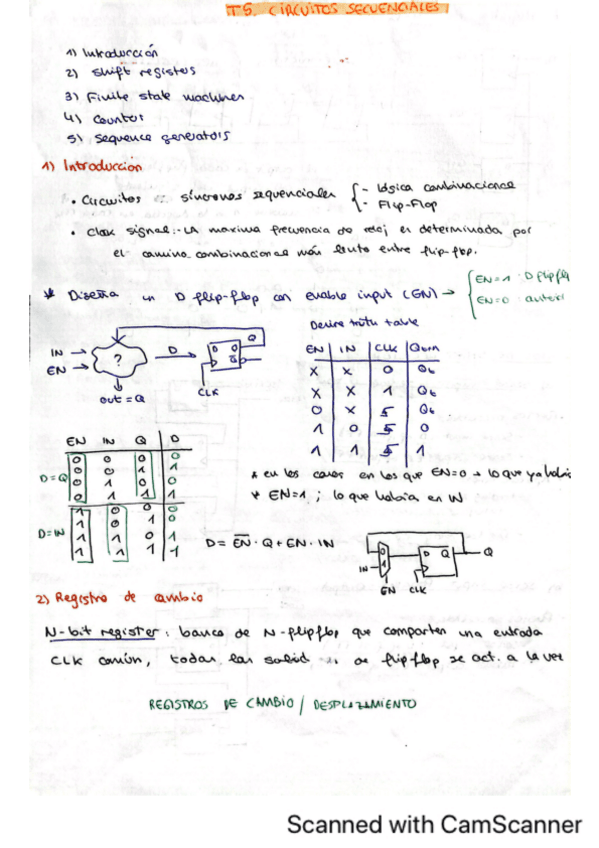 T5. CIRCUITOS SECUENCIALES
1) Introducción
2) Shift registers
3) Finite state machines
4) Counter
5) Sequence generators
1) Introduccion
• Circuitos síncronos sequenciales { - lógica combinacional
- Flip-Flop
• Clock signal: - LA maxima frecuencia de reloj es determinada por
el camino combinacional más lento entre flip-flop.
* Diseña un D flip-flop con enable input (EN) → { EN=1 : D flip flop
EN=0 :
Derive truth table
IN → ? D → D Q Q
EN →
out = Q CLK
EN IN CLK Qt+n
X X 0 Qt
X X 1 Qt
0 X Qt
1 0 0
1 1 1
EN IN Q D
D=Q 0 0 0 0
0 0 1 1
0 1 0 0
0 1 1 1
D=IN 1 0 0 0
1 0 1 0
1 1 0 1
1 1 1 1
* en los casos en los que EN=0 → lo que ya había
* EN=1 ; lo que había en IN
D = EN · Q + EN · IN
IN 0 1 D Q Q
EN CLK
2) Registro de cambio
N-bit register : banco de N-flip flop que comparten una entrada
CLK común, todas las flip flop se act. a la vez
REGISTROS DE CAMBIO / DESPLAZAMIENTO
Scanned with CamScanner